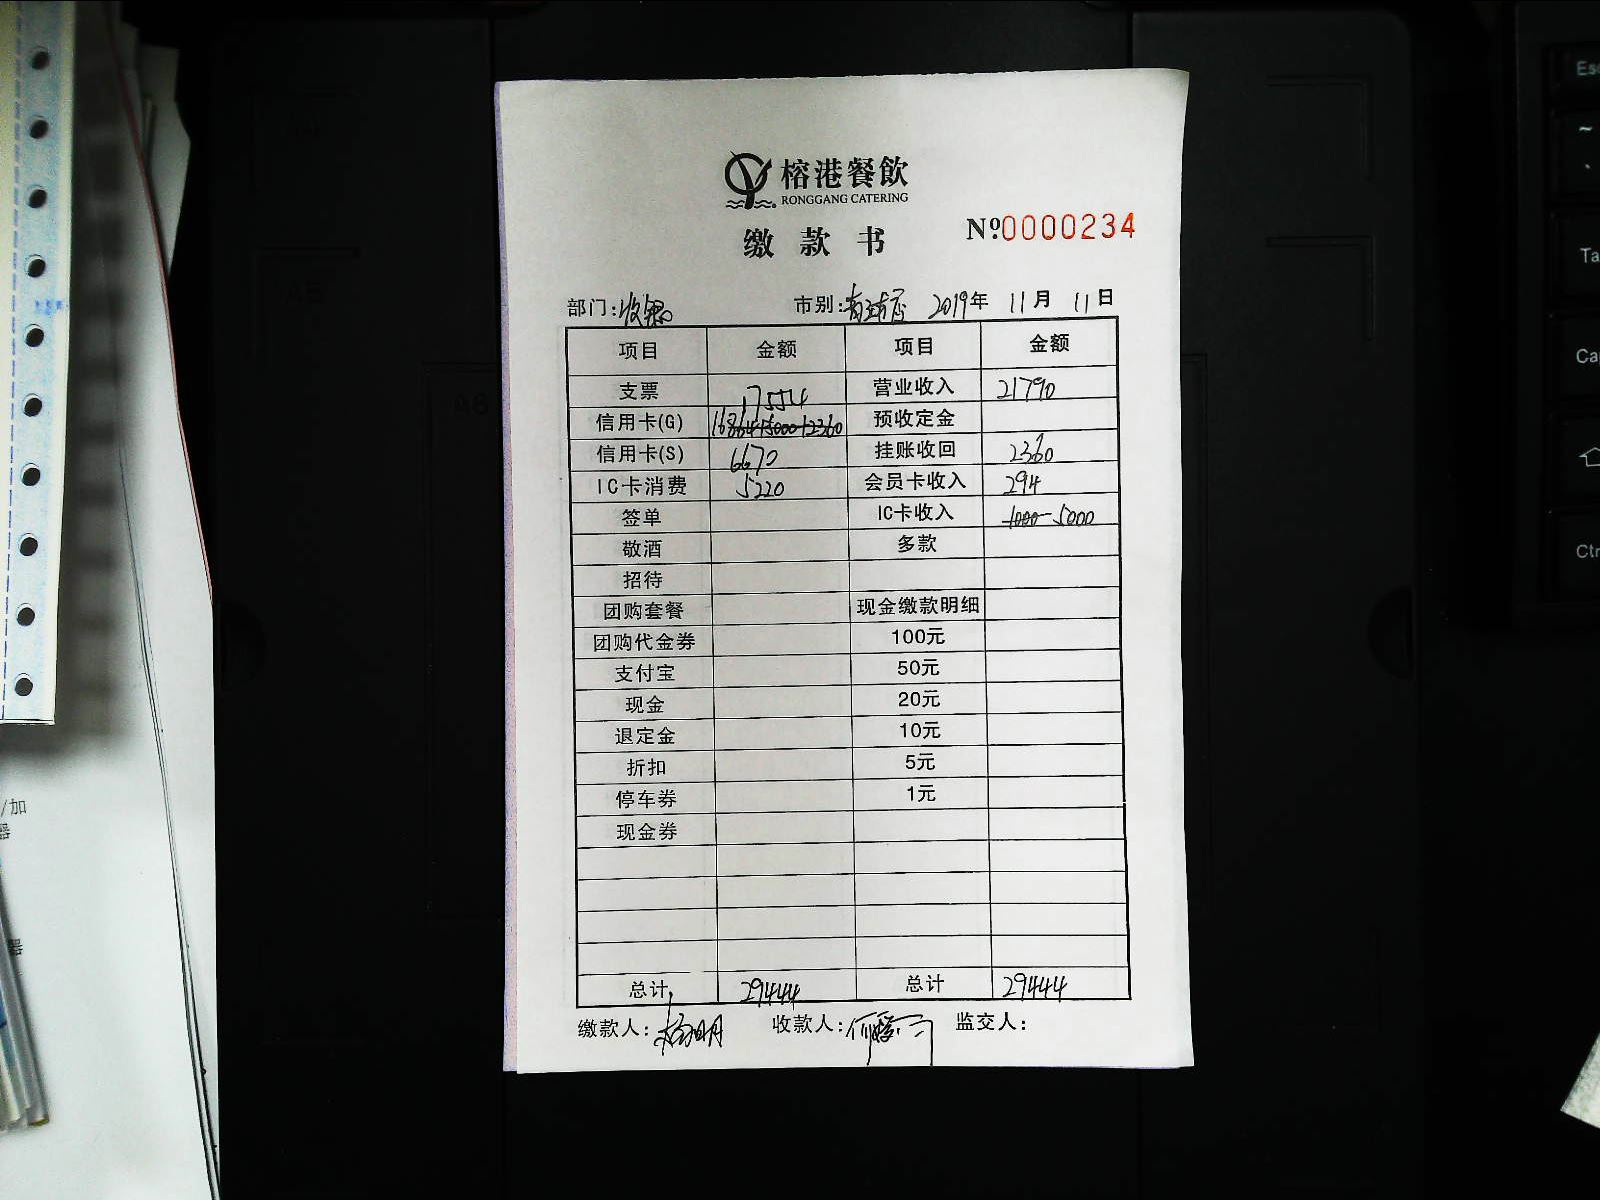 榕港餐飲
RONGGANG CATERING
缴款书 Nº:0000234
部门:收银 市别: 2019年 11月 11日
项目 金额 项目 金额
支票 17554 营业收入 21790
信用卡(G) 16864+5000+2360 预收定金
信用卡(S) 6670 挂账收回 2360
IC卡消费 5220 会员卡收入 294
签单 IC卡收入 1000 5000
敬酒 多款
招待
团购套餐 现金缴款明细
团购代金券 100元
支付宝 50元
现金 20元
退定金 10元
折扣 5元
停车券 1元
现金券
总计 29444 总计 29444
缴款人: 收款人: 监交人:
Esc
~
Ta
Ca
Ctr
/加
器
器
A5
A6